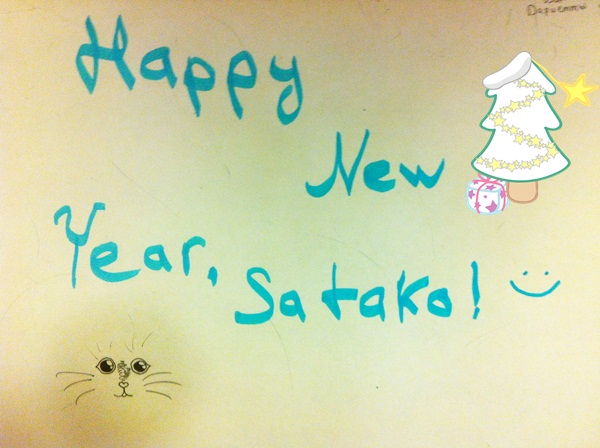 Happy
New
Year,
Satako! :)